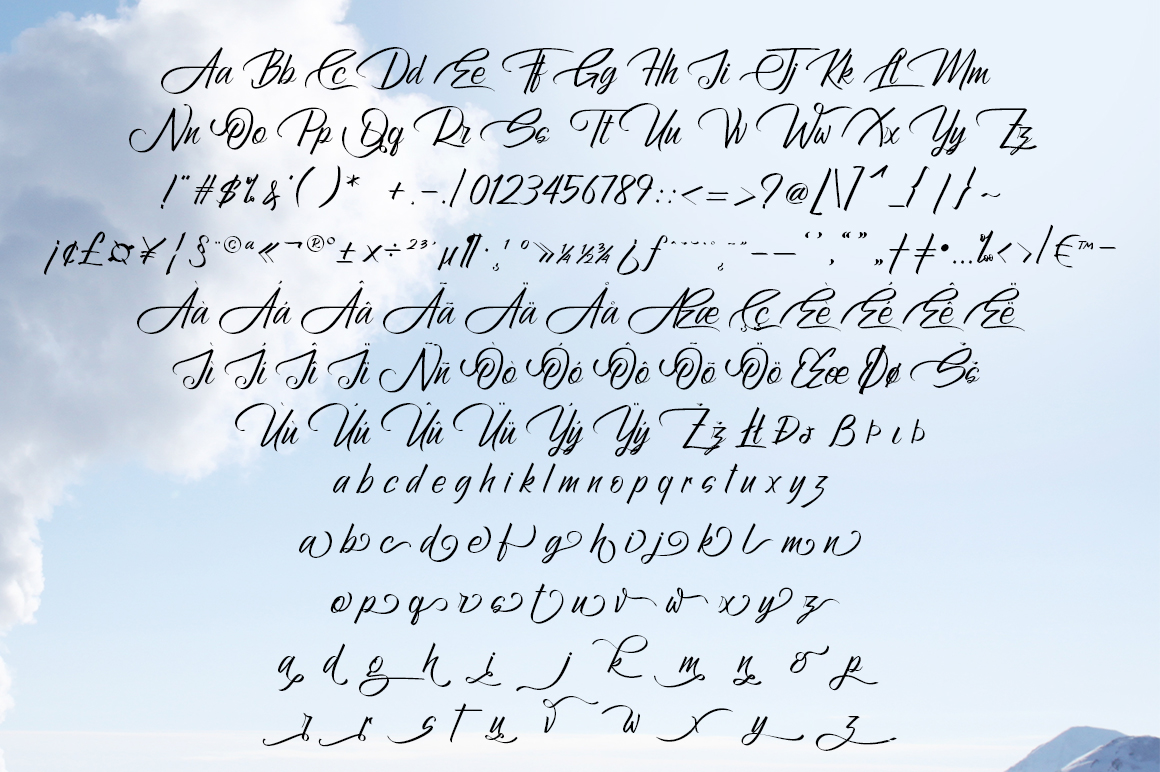 Aa Bb Cc Dd Ee Ff Gg Hh Ii Jj Kk Ll Mm
Nn Oo Pp Qq Rr Ss Tt Uu Vv Ww Xx Yy Zz
! " # $ % & ' ( ) * + , - . / 0123456789 : ; < = > ? @ [ \ ] ^ _ { | } ~
¡ ¢ £ ¤ ¥ ¦ § ¨ © ª « ¬ ® ° ± × ÷ ² ³ ´ µ ¶ · ¸ ¹ º » ¼ ½ ¾ ¿ ƒ – — ‘ ’ ‚ “ ” „ † ‡ • … ‰ ‹ › ⁄ € ™ −
Àà Áá Ââ Ãã Ää Åå Ææ Çç Èè Éé Êê Ëë
Ìì Íí Îî Ïï Ññ Òò Óó Ôô Õõ Öö Œœ Øø Šš
Ùù Úú Ûû Üü Ýý Ÿÿ Žž Łł Ðð ß Þ ı þ
a b c d e g h i k l m n o p q r s t u x y z
a b c d e f g h i j k l m n
o p q r s t u v w x y z
a d g h i j k m n o p
r r s t u v w x y z